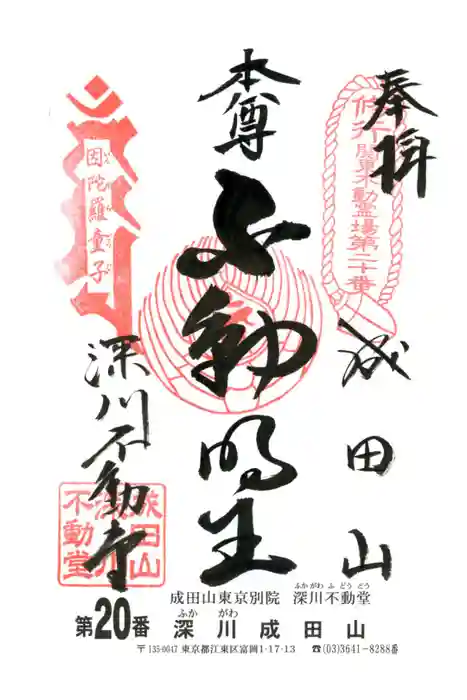 奉拝
成田山
修行
関東不動霊場第二十番
本尊
不動明王
因陀羅童子
いんだらどうじ
深川不動堂
成田山
深川
不動堂
成田山東京別院 深川不動堂
ふかがわふどうどう
第20番 深川成田山
ふか がわ
〒135-0047 東京都江東区富岡1-17-13 ☎(03)3641-8288番